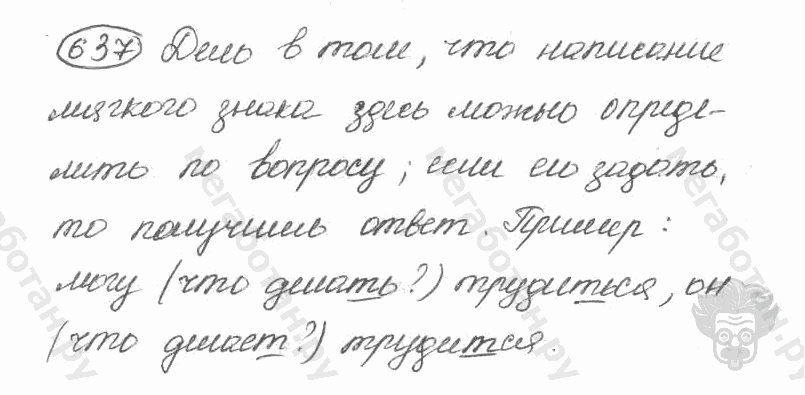 637 Дело в том, что написание
мягкого знака здесь можно опреде-
лить по вопросу; если его задать,
то получишь ответ. Пример:
могу (что делать?) трудиться, он
(что делает?) трудится.
мегаботан.ру